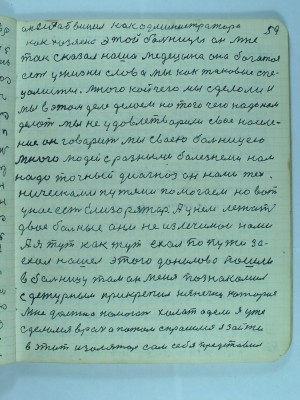 59
как админостратора
как хозяено этой болницы он мне
так сказал наша медецына она богата
ест у жизни слова мы как таковые спе-
цолисты. много кой чего мы сделоли и
мы в этом деле делоем но того чего надо нам
делот мы не удовлетварили свое населе-
ние он говарит мы своею болницею
много людей с разными болезнеми нам
надо точный диагноз он нами тех.
ническими путями помогает но вот
у нас ест Ау нем лежат
двое болные они не излечимые нами
А я тут как тут ехал по пути за-
ехал нашел этого пошли
в болницу там он меня познакомил
с дежурным прикрепил нянечку которая
мне должна помогат халат одели я уже
сделался врач а потом спросился я зайти
в этит изолятор сам себя представил